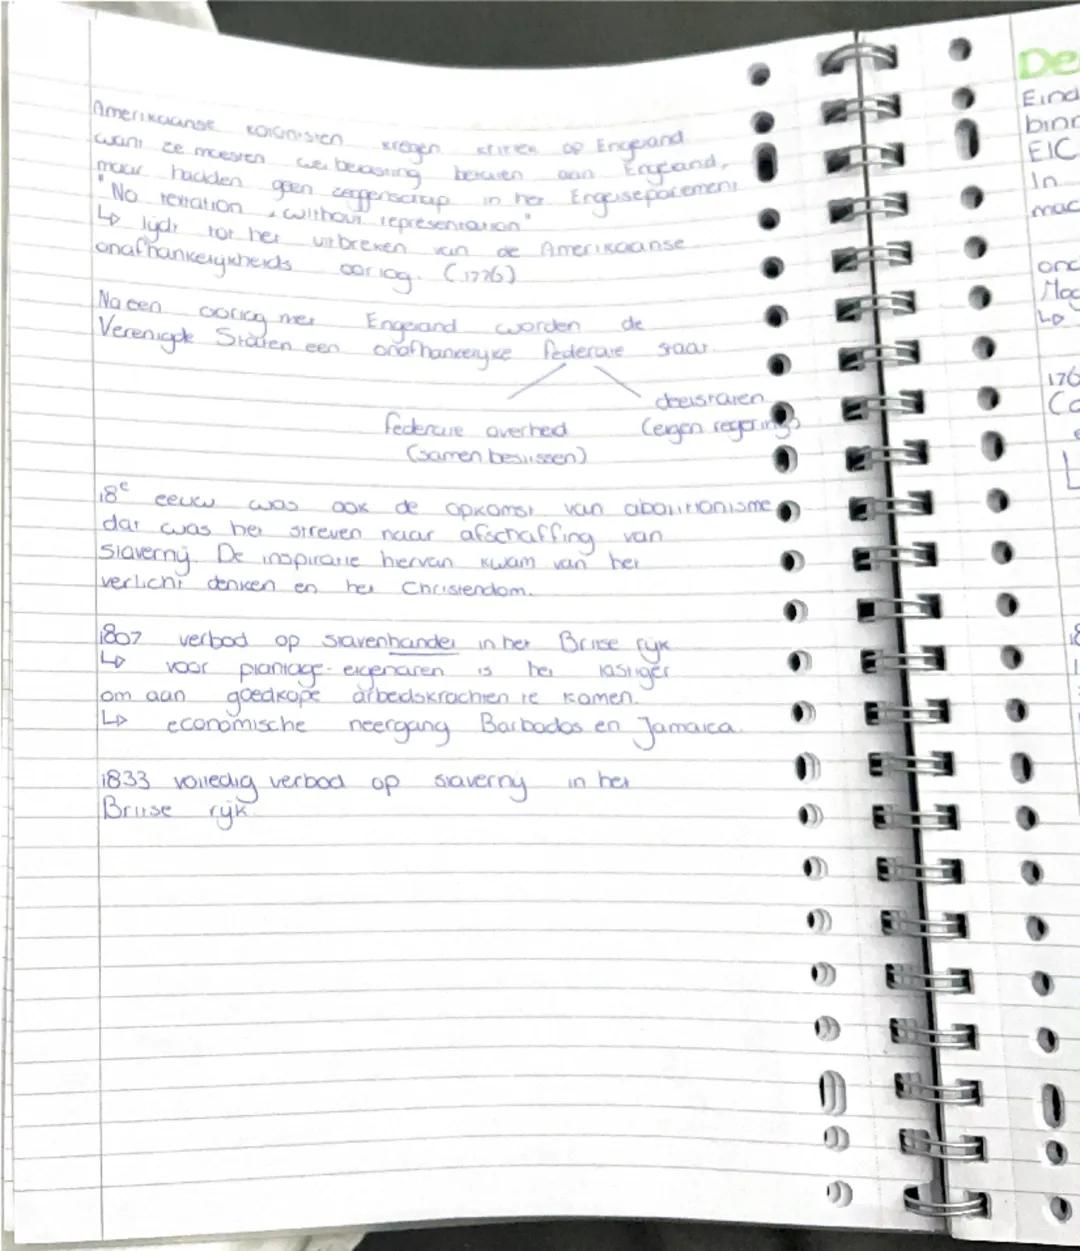 Amerikaanse kolonisten kregen kritiek op Engeland
want ze moesten wel belasting betalen aan Engeland,
maar hadden geen zeggenschap in het Engelseparlement
"No textation, without representation"
↳ lijdt tot het uitbreken van de Amerikaanse
onafhankelijkheids oorlog. (1776)
Na een oorlog met Engeland worden de
Verenigde Staten een onafhankelijke federale staat.
deelstaten
federale overheid (eigen regering)
(samen beslissen)
18e eeuw was ook de opkomst van abolitionisme
dat was het streven naar afschaffing van
slavernij. De inspiratie hiervan kwam van het
verlicht denken en het Christendom.
1807 verbod op slavenhandel in het Britse rijk
↳ voor plantage-eigenaren is het lastiger
om aan goedkope arbeidskrachten te komen.
↳ economische neergang Barbados en Jamaica.
1833 volledig verbod op slavernij in het
Britse rijk
De
Eind
binn
EIC
In
mac
ond
Mog
↳
176
Co